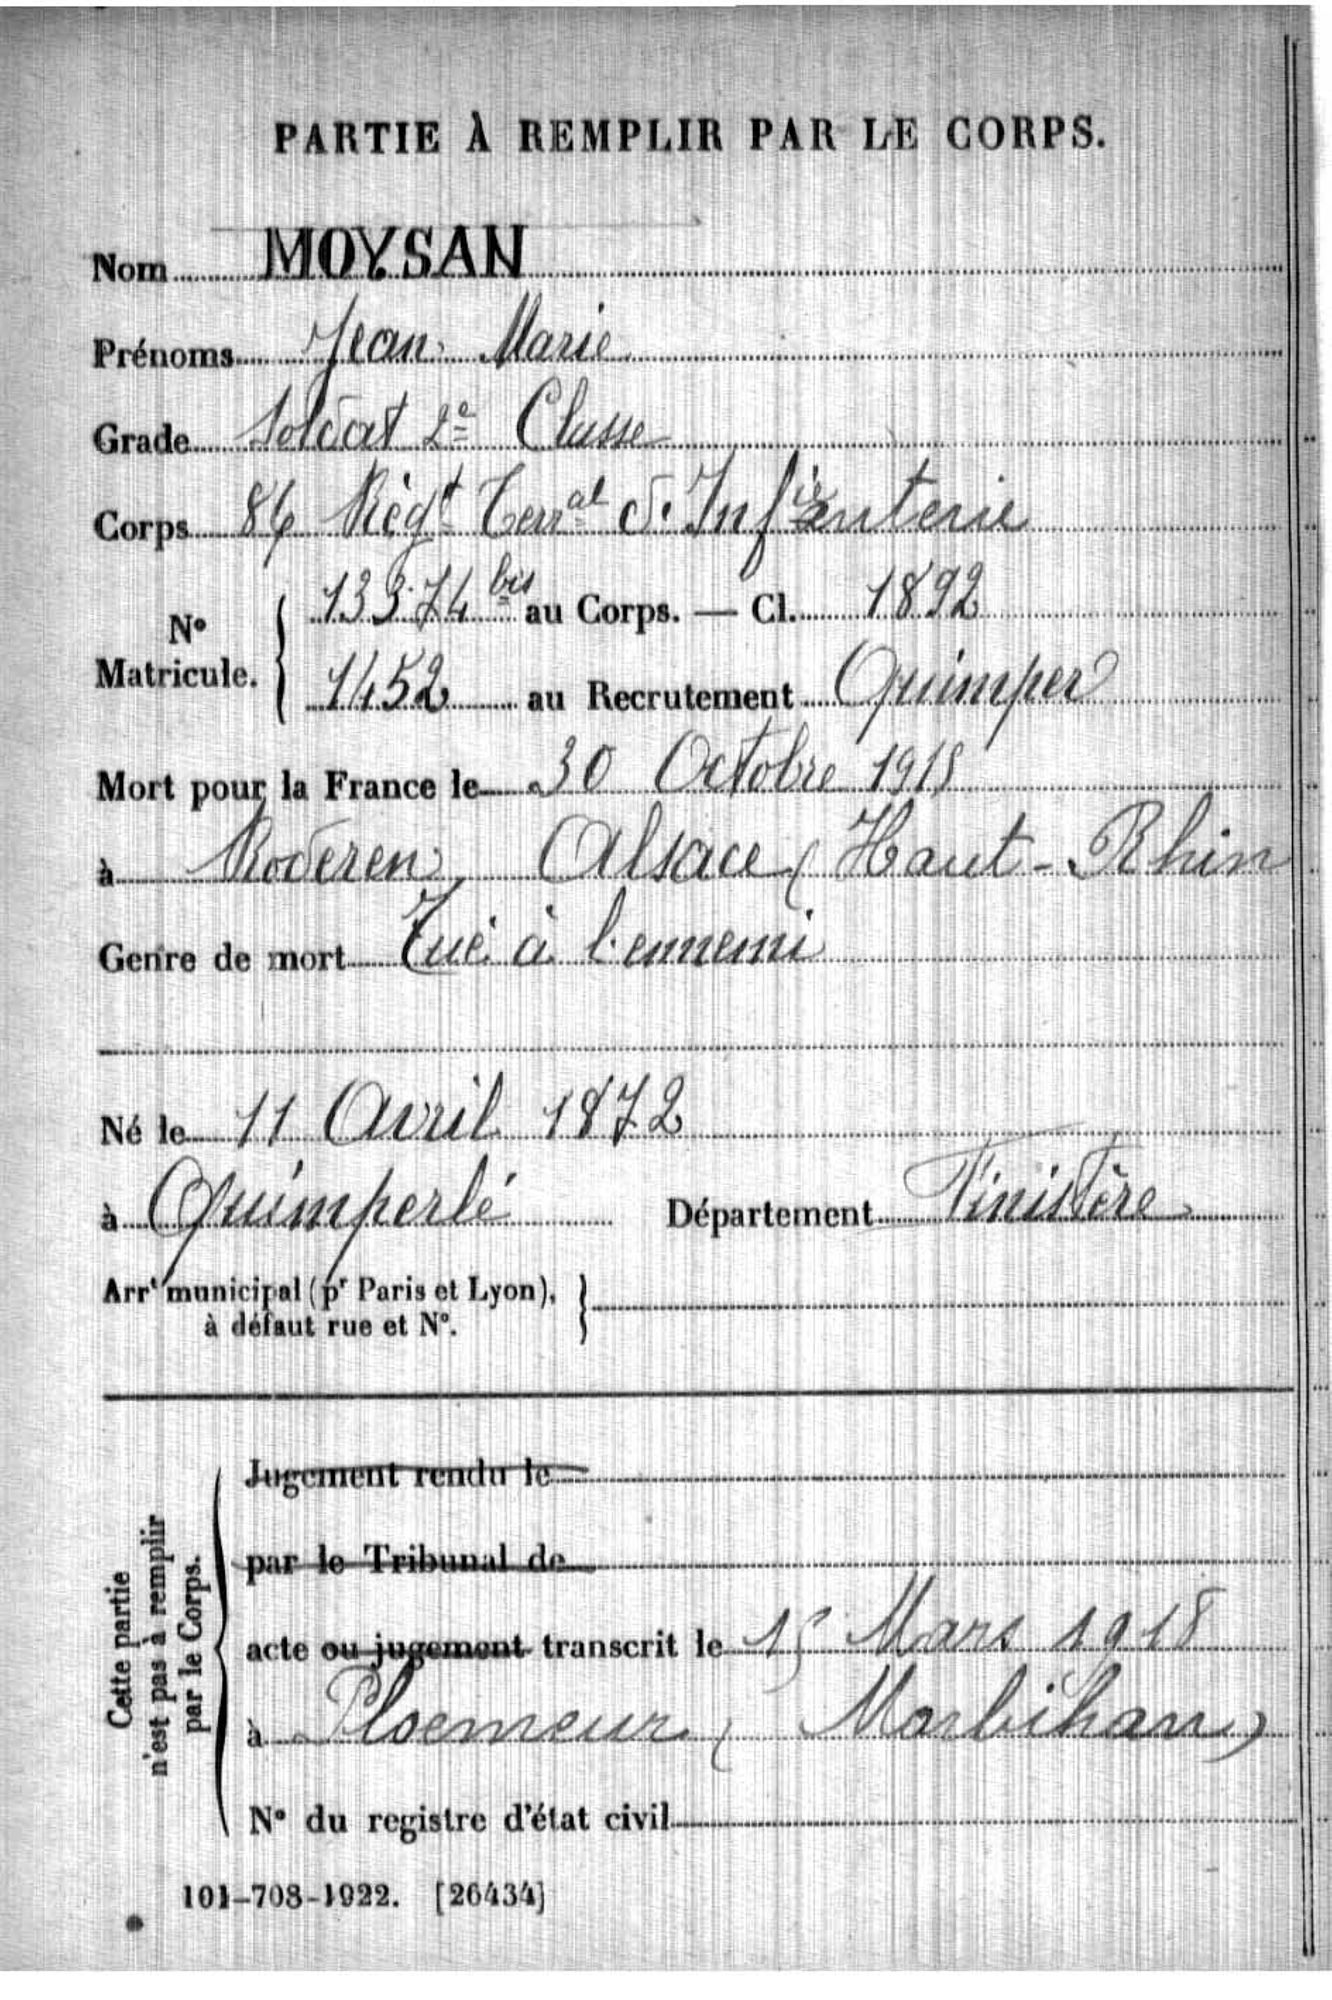 PARTIE À REMPLIR PAR LE CORPS.
Nom MOYSAN
Prénoms Jean Marie
Grade Soldat 2e Classe
Corps 86 Régt Terral d'Infanterie
N° Matricule. 13374 bis au Corps. — Cl. 1892
1452 au Recrutement Quimper
Mort pour la France le 30 Octobre 1915
à Roderen Alsace (Haut-Rhin
Genre de mort Tué à l'ennemi
Né le 11 Avril 1872
à Quimperlé Département Finistère
Arrt municipal (pr Paris et Lyon),
à défaut rue et N°.
Cette partie
n'est pas à remplir
par le Corps.
Jugement rendu le
par le Tribunal de
acte ou jugement transcrit le 15 Mars 1918
à Ploemeur (Morbihan)
N° du registre d'état civil
101-708-1922. [26434]